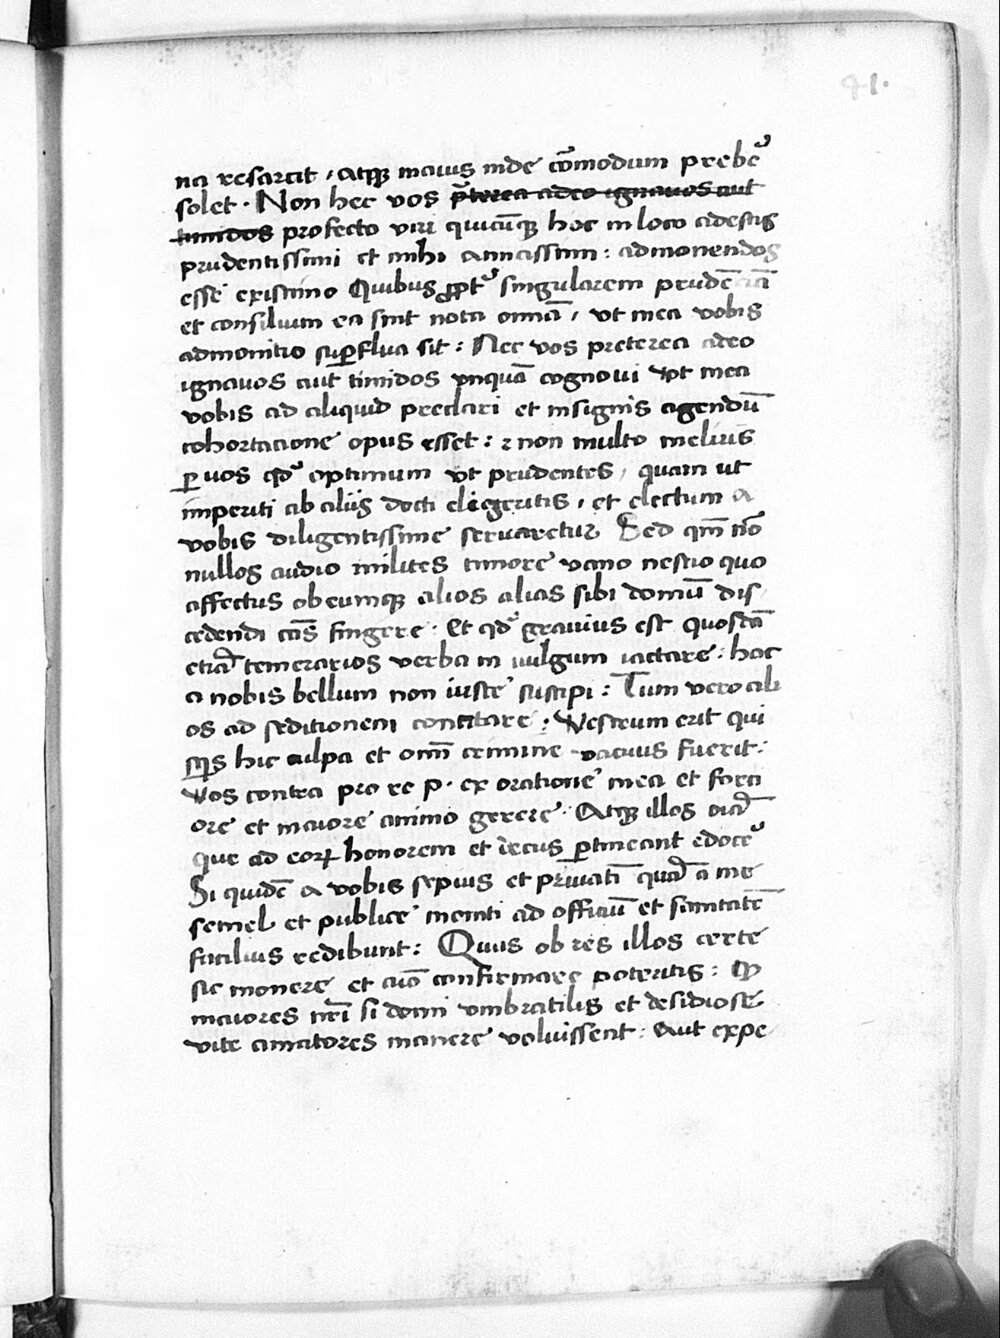 41.
na resarcit, atqꝫ maius inde cōmodum prebeˀ
solet. Non hec vos p̄terea adeo ignauos aut
timidos profecto viri quicūqꝫ hoc in loco adestis
prudentissimi et mihi amicissimi: admonendos
esse existimo Quibus ꝓptˀ singularem prudēciā
et consilium ea sint nota omīa, vt mea vobis
admonitio suꝑflua sit: Nec vos preterea adeo
ignauos aut timidos vnquā cognoui vt mea
vobis ad aliquid preclari et insignis agendū
cohortacione opus esset: ⁊ non multo melius
ꝑ uos qdˀ optimum vt prudentes, quam ut
imperiti ab aliis docti eligeritis, et electum a
vobis diligentissime seruaretur Sed qm̄ nō
nullos audio milites timore vano nescio quo
affectus ob eumqꝫ alios alias sibi domū dis
cedendi cās fingere: Et qdˀ grauius est quosdā
etiā temerarios verba in uulgum iactare: hac
a nobis bellum non iuste suscipi: Tum vero ali
os ad seditionem concitare: Vestrum erit qui
sqis hic culpa et omī crimine vacuus fuerit:
Vos contra pro re p. ex oratione mea et forci
ore et maiore animo gerere: Atqꝫ illos oīa
que ad eoꝝ honorem et decus ꝑtineant edoceˀ
Si quidē a vobis sepius et priuatī quā a me
semel et publice moniti ad officiū et sanitatē
facilius redibunt: Quas ob res illos certe
sic monere et aīo confirmare poteritis: Qꝫ
maiores nrī si domi vmbratilis et desidiose
vite amatores manere voluissent: Aut expe